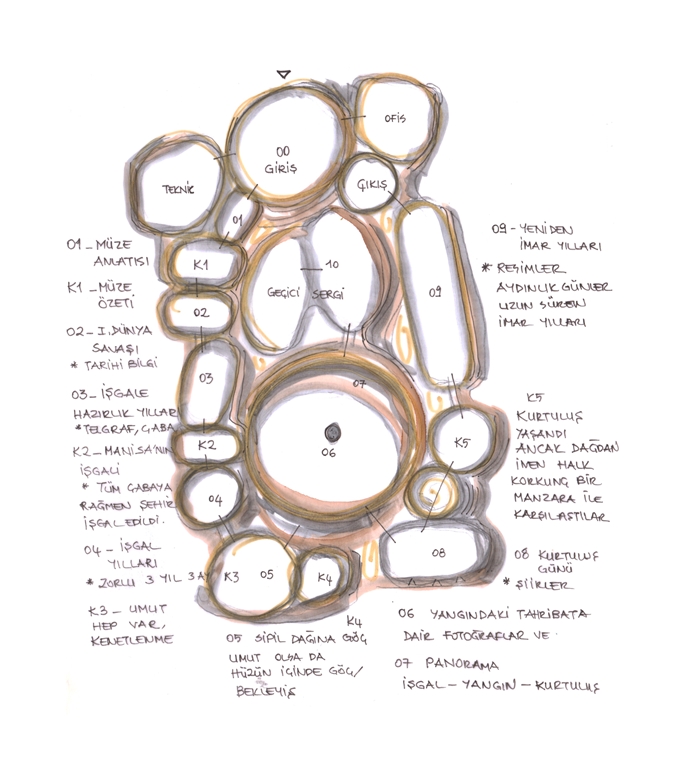 OFİS
00
GİRİŞ
TEKNİK
ÇIKIŞ
01
K1
02
03
K2
04
K3
05
K4
GEÇİCİ
10
SERGİ
09
07
06
K5
08
01_MÜZE
ANLATISI
K1_MÜZE
ÖZETİ
02_I.DÜNYA
SAVAŞI
* TARİHİ BİLGİ
03_İŞGALE
HAZIRLIK YILLAR
*TELGRAF, ÇABA
K2_MANİSA'NIN
İŞGALİ
* TÜM ÇABAYA
RAĞMEN ŞEHİR
İŞGAL EDİLDİ.
04_İŞGAL
YILLARI
* ZORLU 3 YIL 3 AY
K3_UMUT
HEP VAR,
KENETLENME
K4
05 SİPİL DAĞINA GÖÇ
UMUT OLSA DA
HÜZÜN İÇİNDE GÖÇ/
BEKLEYİŞ
09-YENİDEN
İMAR YILLARI
* RESİMLER
AYDINLIK GÜNLER
UZUN SÜREN
İMAR YILLARI
K5
KURTULUŞ
YAŞANDI
ANCAK DAĞDAN
İNEN HALK
KORKUNÇ BİR
MANZARA İLE
KARŞILAŞTILAR
08 KURTULUŞ
GÜNÜ
* ŞİİRLER
06 YANGINDAKİ TAHRİBATA
DAİR FOTOĞRAFLAR VE
07 PANORAMA
İŞGAL-YANGIN-KURTULUŞ